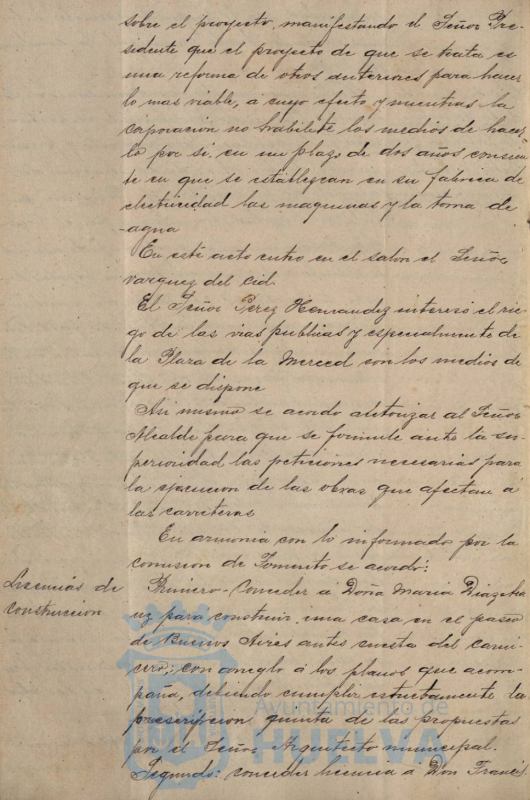 sobre el proyecto, manifestando el Señor Pre-
sidente que el proyecto de que se trata es
una reforma de otros anteriores para hacer
lo mas viable, á cuyo efecto y mientras la
corporacion no habilite los medios de hacer
lo por si, en un plazo de dos años consien
te en que se establezcan en su fabrica de
electricidad las maquinas y la toma de
-agua
En este acto entro en el salon el Señor
Vazquez del Cid.
El Señor Perez Hernandez intereso el rie
go de las vias publicas y especialmente de
la Plaza de la Merced con los medios de
que se dispone
Asi mismo se acordo autorizar al Señor
Alcalde para que se formule ante la su-
perioridad las peticiones necesarias para
la ejecucion de las obras que afectan á
las carreteras
En armonia con lo informado por la
comision de Fomento se acordo:
Licencias de
construccion
Primero- Conceder á Doña Maria Diaz
uz para construir una casa en el paseo
de Buenos Aires antes cuesta del Carni-
cero; con arreglo á los planos que acom-
paña, debiendo cumplir estrictamente la
prescripcion quinta de las propuestas
por el Señor Arquitecto municipal.
Segundo: conceder licencia á Don Francis
Ayuntamiento de
HUELVA